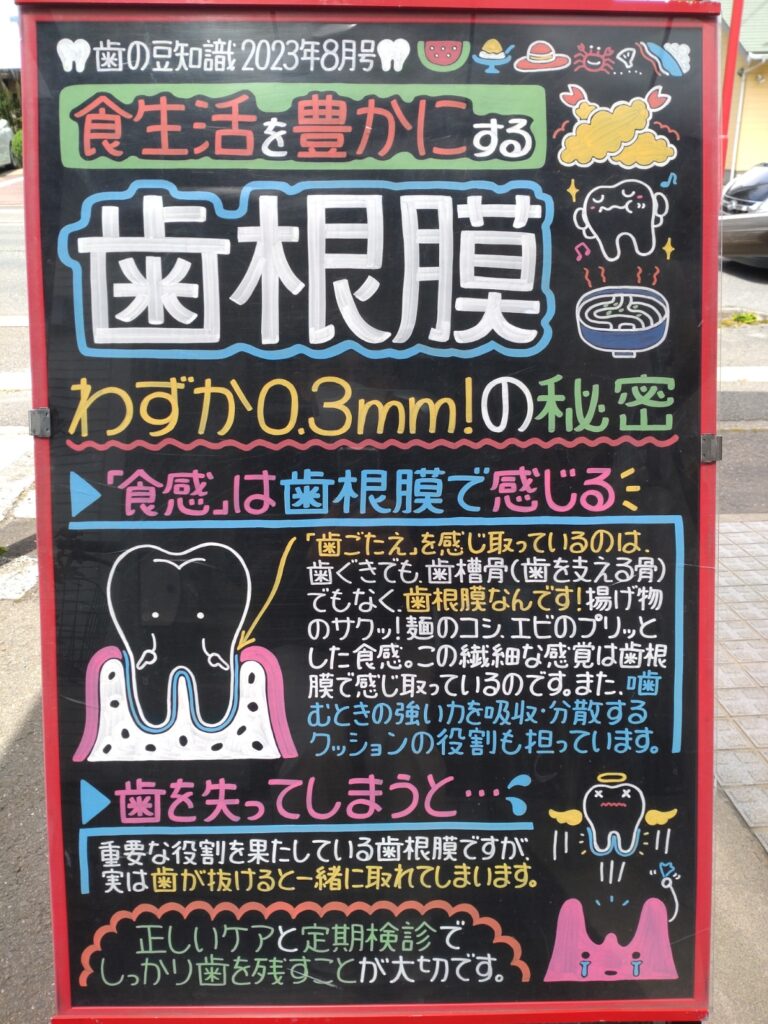 歯の豆知識 2023年8月号
食生活を豊かにする
歯根膜
わずか0.3mm!の秘密
「食感」は歯根膜で感じる
「歯ごたえ」を感じ取っているのは、
歯ぐきでも、歯槽骨(歯を支える骨)
でもなく、歯根膜なんです!揚げ物
のサクッ!麺のコシ、エビのプリッと
した食感。この繊細な感覚は歯根
膜で感じ取っているのです。また、噛
むときの強い力を吸収・分散する
クッションの役割も担っています。
歯を失ってしまうと…
重要な役割を果たしている歯根膜ですが、
実は歯が抜けると一緒に取れてしまいます。
正しいケアと定期検診で
しっかり歯を残すことが大切です。